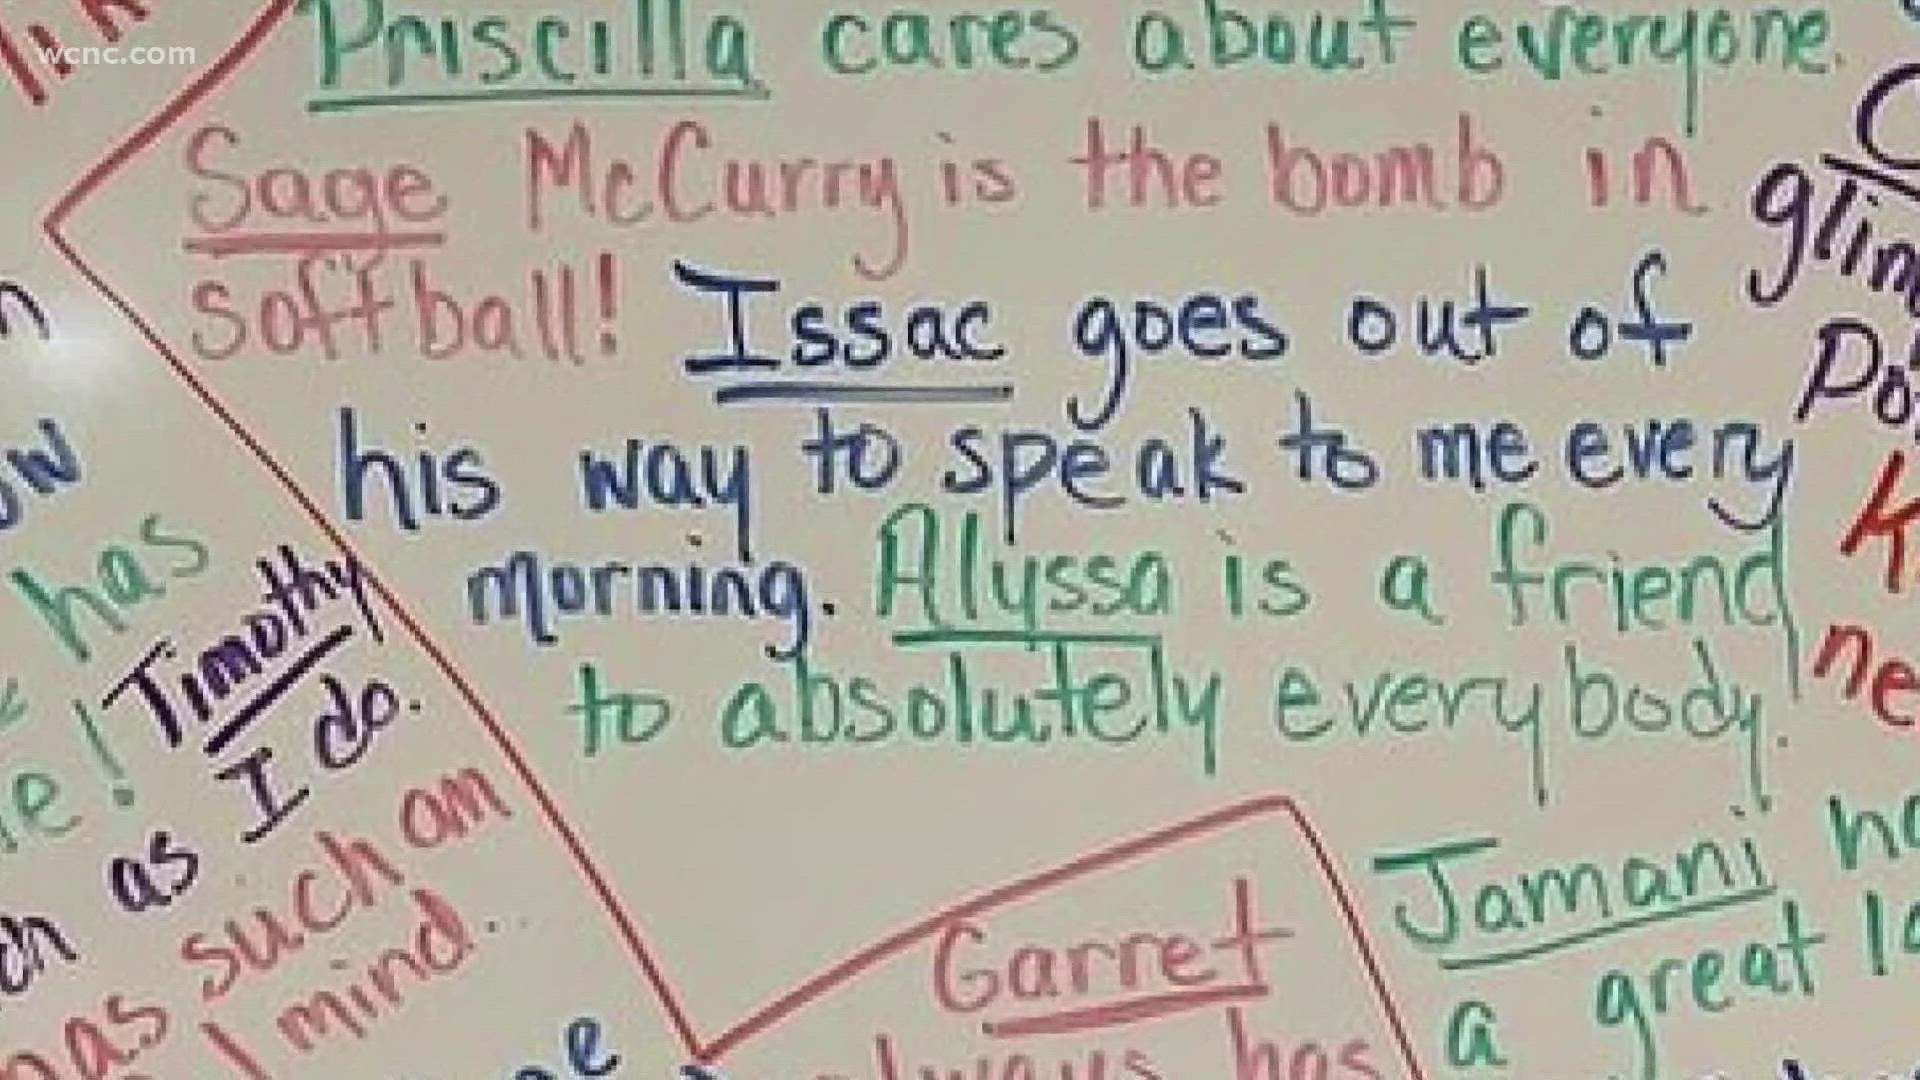 wcnc.com
Priscilla cares about everyone.
Sage McCurry is the bomb in
softball! Issac goes out of
his way to speak to me every
morning. Alyssa is a friend
to absolutely everybody!
has
Timothy
as I do.
has such am
mind.
Garret
always has
Jamani
a great